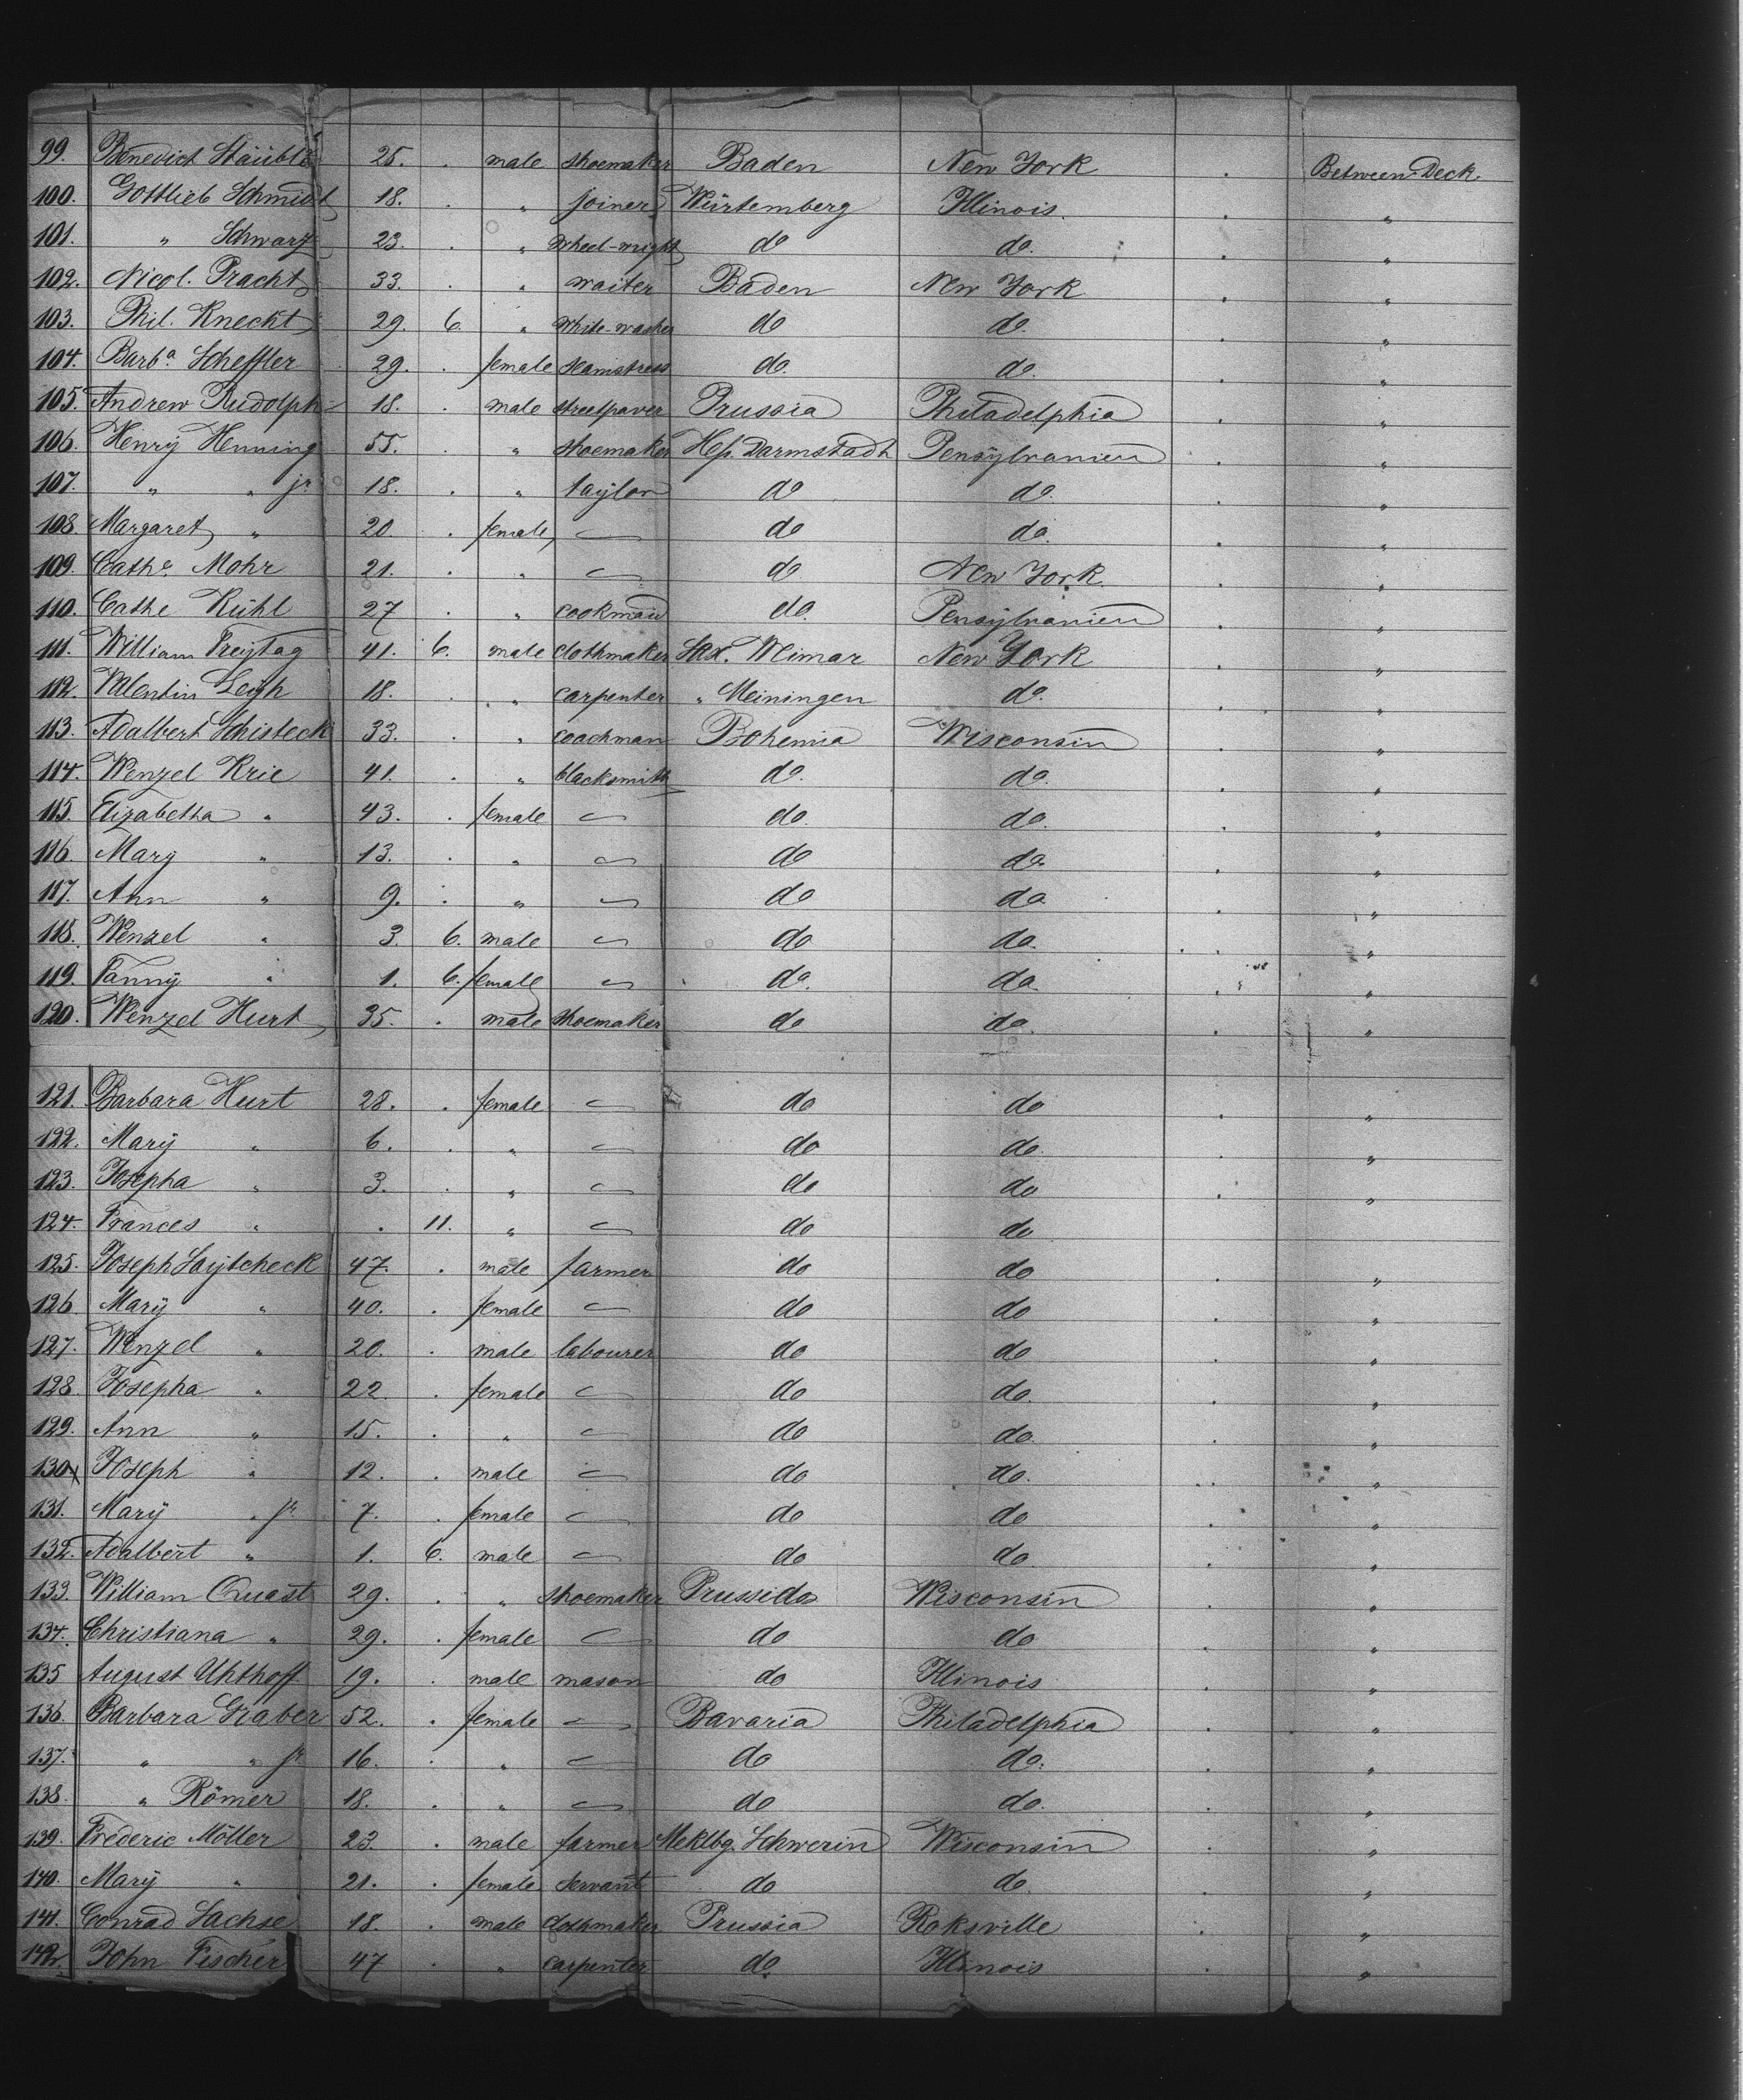 99. Benedict Stäüble 25. . male shoemaker Baden New York . Between Deck.
100. Gottlieb Schmidt 18. . " joiner Würtemberg Illinois. . "
101. " Schwarz 23. . " wheel-wright do do. . "
102. Nicol. Pracht 33. . " waiter Baden New York . "
103. Phil. Knecht 29. 6. " white-washer do do. . "
104. Barbª Scheffler 29. . female seamstress do. do. . "
105. Andrew Rudolph 18. . male streetpaver Prussia Philadelphia . "
106. Henry Henning 55. " shoemaker Hess. Darmstadt Pensylvanien . "
107. " " jr. 18. . " taylor do do. . "
108. Margaret " 20. . female — do do. . "
109. Cathe. Mohr 21. . " — do New York. . "
110. Cathe Kühl 27 . " cookmaid do. Pensylvanien . "
111. William Freytag 41. 6. male clothmaker Sax. Weimar New York . "
112. Valentin Leyh 18. . " carpenter " Meiningen do. . "
113. Adalbert Schisteck 33. . " coachman Bohemia Wisconsin . "
114. Wenzel Krie 41. . " blacksmith do. do. . "
115. Elizabetha " 43. . female — do. do. . "
116. Mary " 13. . " — do do. . "
117. Ann " 9. . " — do do. . "
118. Wenzel " 3. 6. male — do do. . "
119. Fanny " 1. 6. female — do. do. . "
120. Wenzel Hurt 35. . male shoemaker do do. . "
121. Barbara Hurt 28. . female — do do . "
122. Mary " 6. . " — do do. . "
123. Josepha " 3. . " — do do . "
124. Frances " . 11. " — do do
125. Joseph 47. . male farmer do do . "
126 Mary " 40. . female — do do . "
127. Wenzel " 20. . male labourer do do . "
128 Josepha " 22. . female — do do. . "
129. Ann " 15. . " — do do. . "
130 Joseph " 12. . male — do do. . "
131. Mary " jr. 7. . female — do do . "
132. Adalbert " 1. 6. male — do do. . "
133. William Quast 29. . " shoemaker Prussia Wisconsin . "
134. Christiana " 29. . female — do do . "
135 August Uhthoff 19. . male mason do Illinois . "
136. Barbara Graber 52. . female — Bavaria Philadelphia . "
137. " " jr 16. . " — do do. . "
138. " Römer 18. . " — do do. . "
139. Frederic Möller 23. . male farmer Meklbg. Schwerin Wisconsin . "
140. Mary " 21. . female servant do do. . "
141. Conrad Sachse 18. . male clothmaker Prussia Roksville . "
142. John Fischer 47 . " carpenter do. Illinois . "